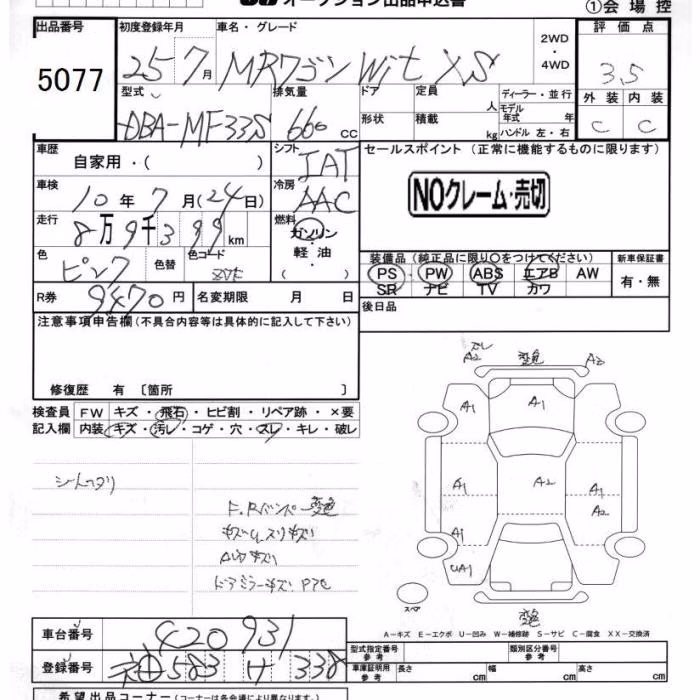 オークション出品申込書
①会場控
出品番号 初度登録年月 車名・グレード 2WD・4WD 評価点
5077 25 7月 MRワゴン Wit XS 3.5
外装 内装
C C
型式 排気量 ドア 定員 人 ディーラー・並行
DBA-MF33S 660 cc 形状 積載 kg モデル年式 年
ハンドル 左・右
車歴 自家用・( ) シフト IAT セールスポイント (正常に機能するものに限ります)
車検 10年7月(24日) 冷房 AAC NOクレーム・売切
走行 8万9千399km 燃料 ガソリン・軽油・( )
色 ピンク 色替 色コード ZVE
装備品(純正品に限り〇をつけてください) 新車保証書
PS PW ABS エアB AW 有・無
SR ナビ TV カワ
R券 9470円 名変期限 月 日 後日品
注意事項申告欄(不具合内容等は具体的に記入して下さい)
修復歴 有 〔箇所 〕
検査員 FW キズ・飛石・ヒビ割・リペア跡・×要
記入欄 内装 キズ・汚レ・コゲ・穴・スレ・キレ・破レ
ズレ
A2 変色 A2
A1 A1
A1 A2 A1
A2
A1
UA1
スペア
変色
シートヘタリ
F.Rバンパー変色
キズU スリキズ
AWキズ
ドアミラーキズ
A－キズ E－エクボ U－凹み W－補修跡 S－サビ C－腐食 XX－交換済
車台番号 420931
登録番号 583 サ 338
型式指定番号 参考 類別区分番号 参考
車庫証明用 参考 長さ cm 幅 cm 高さ cm
希望出品コーナー(コーナーは各会場により異なります)